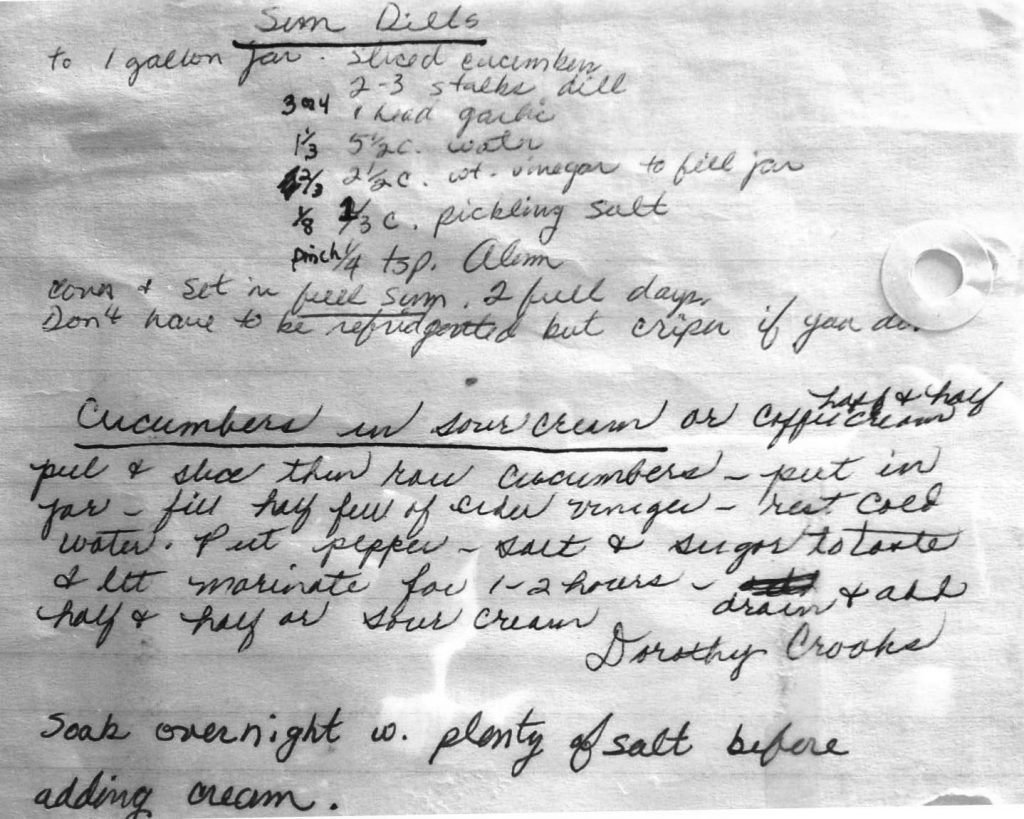 Sun Dills
to 1 gallon jar. sliced cucumbers
2-3 stalks dill
3 or 4 1 head garlic
1 1/3 5 1/2 c. water
2/3 2 1/2 c. wt. vinegar to fill jar
1/8 1/3 c. pickling salt
pinch 1/4 tsp. Alum
cover & set in full sun. 2 full days.
Don't have to be refridgerated but crisper if you do.
Cucumbers in sour cream or coffee cream
half & half
peel & slice thin raw cucumbers - put in
jar - fill half full of cider vineger - rest cold
water. Put pepper - salt & sugar to taste
& let marinate for 1-2 hours -
drain & add
half & half or sour cream
Dorothy Crooks
Soak overnight w. plenty of salt before
adding cream.